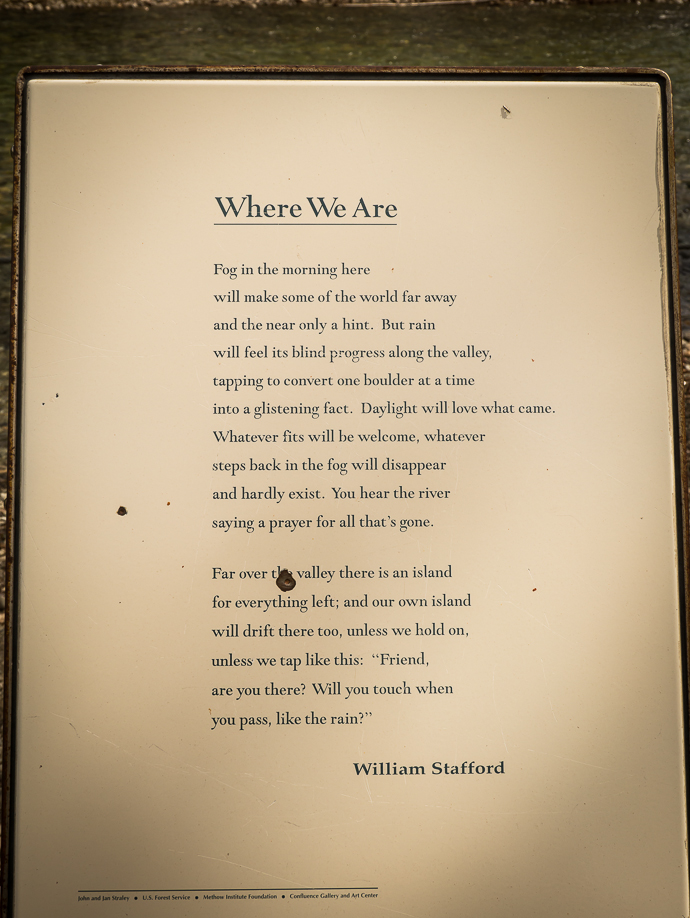 Where We Are
Fog in the morning here
will make some of the world far away
and the near only a hint. But rain
will feel its blind progress along the valley,
tapping to convert one boulder at a time
into a glistening fact. Daylight will love what came.
Whatever fits will be welcome, whatever
steps back in the fog will disappear
and hardly exist. You hear the river
saying a prayer for all that's gone.
Far over the valley there is an island
for everything left; and our own island
will drift there too, unless we hold on,
unless we tap like this: “Friend,
are you there? Will you touch when
you pass, like the rain?”
William Stafford
John and Jan Straley • U.S. Forest Service • Methow Institute Foundation • Confluence Gallery and Art Center